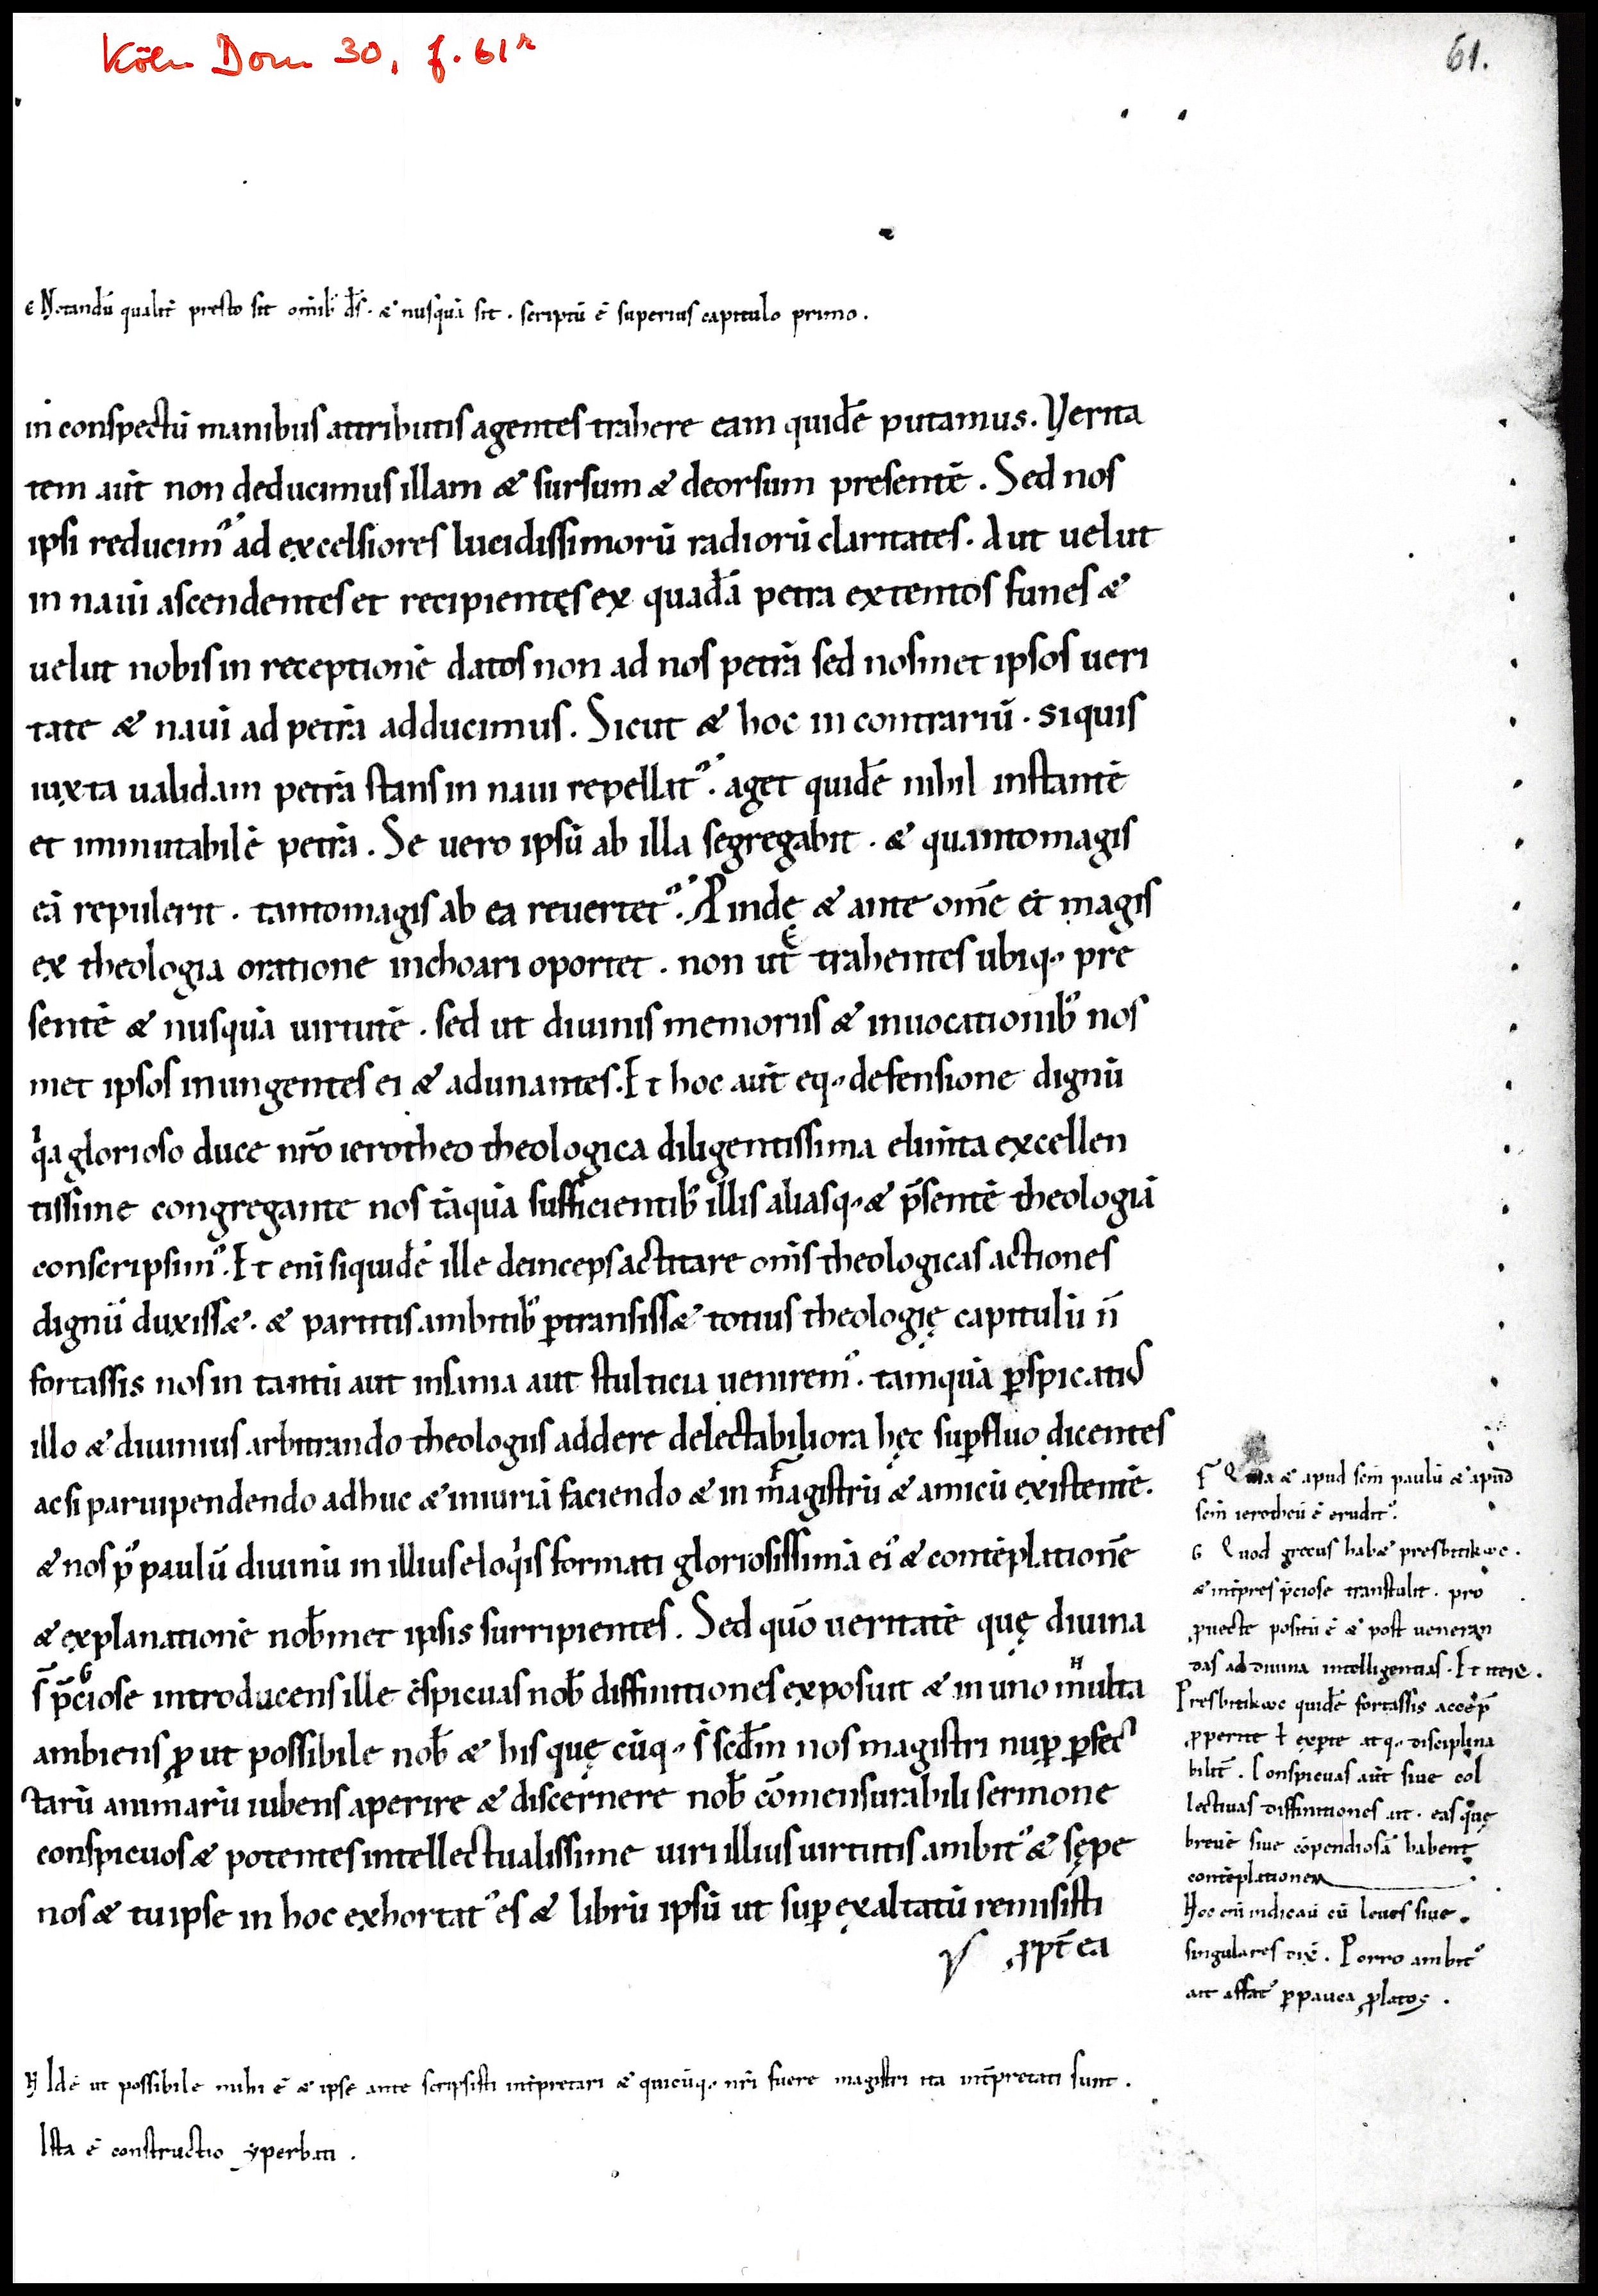 Köln Dom 30, f. 61r
61.
E Notandū qualit̄ presto sit omīb; d̄s. & nusquā sit. scriptū ē superius capitulo primo.
in conspectū manibus attributis agentes trahere eam quidē putamus. Verita
tem aūt non deducimus illam & sursum & deorsum presentē. Sed nos
ipsi reducim᾽ ad excelsiores lucidissimorū radiorū claritates. Aut uelut
in naui ascendentes et recipientes ex quadā petra extentos funes &
uelut nobis in receptionē datos non ad nos petrā sed nosmet ipsos ueri
tate & naui ad petrā adducimus. Sicut & hoc in contrariū. siquis
iuxta ualidam petrā stans in naui repellit᾽. aget quidē nihil instantē
et inmutabilē petrā. Se uero ipsū ab illa segregabit. & quantomagis
eā repulerit. tantomagis ab ea reuertet᾽. Pinde & ante om̄e et magis
ex theologia oratione inchoari oportet. non ut E trahentes ubiq; pre
sentē & nusquā uirtutē. sed ut diuinis memoriis & inuocationib; nos
met ipsos inungentes ei & adunantes. Et hoc aūt eq; defensione dignū
qa glorioso duce nr̄o ierotheo theologica diligentissima eluiita excellen
tissime congregante nos tāquā sufficientib; illis aliasq; & p̄sentē theologiā
conscripsim᾽. Et eni siquidē ille deinceps actitare om̄is theologicas actiones
dignū duxiss&. & partitis ambitib; ꝑtransiss& totius theologię capitulū n̄
fortassis nos in tantū aut insania aut stulticia uenirem᾽. tamquā ꝑspicati᾽
illo & diuinius arbitrando theologiis addere delectabiliora hęc suꝑfluo dicentes
acsi paruipendendo adhuc & iniuriā faciendo & in F magistrū & amicū existentē.
& nos p᾽ paulū diuinū in illius eloqiis formati gloriosissimā ei᾽ & contēplationē
& explanationē nob̄met ipsis surripientes. Sed quō ueritatē quę diuina
s̄ p̄ciose G introducens ille c̄spicuas nob̄ diffinitiones exposuit & in uno H multa
ambiens ꝓut possibile nob̄ & his quę cūq; s̄ scdm̄ nos magistri nuꝑ ꝑfec
tarū animarū iubens aperire & discernere nob̄ cōmensurabili sermone
conspicuos & potentes intellectualissime uiri illius uirtutis ambit᾽ & sępe
nos & tu ipse in hoc exhortat᾽ es & librū ipsū ut suꝑexaltatū remisisti
V ꝓpt̄ea
F Quia & apud sc̄m paulū & apud
sc̄m ierotheū ē erudit᾽.
G Quod grecus hab& presbitikωc.
& int̄pres p̄ciose transtulit. pro
ꝓuecte positū ē & post ueneran
das ad diuina intelligentias. Et iterū.
Presbitikωc quidē fortassis accep̄
ꝓperite ł exꝑte atq; disciplina
bilit̄. Conspicuas aūt siue col
lectiuas diffinitiones ait. eas quę
breuē siue cōpendiosā habent
contēplationem
Hoc eni indicau cū leues siue
singulares dix̄. Porro ambit᾽
ait affat᾽ ꝑpauca ꝓlatos.
H Idē ut possibile mihi ē & ipse ante scripsisti int̄pretari & quicūq; nr̄i fuere magistri ita int̄pretati sunt.
Ista ē constructio yperbati.